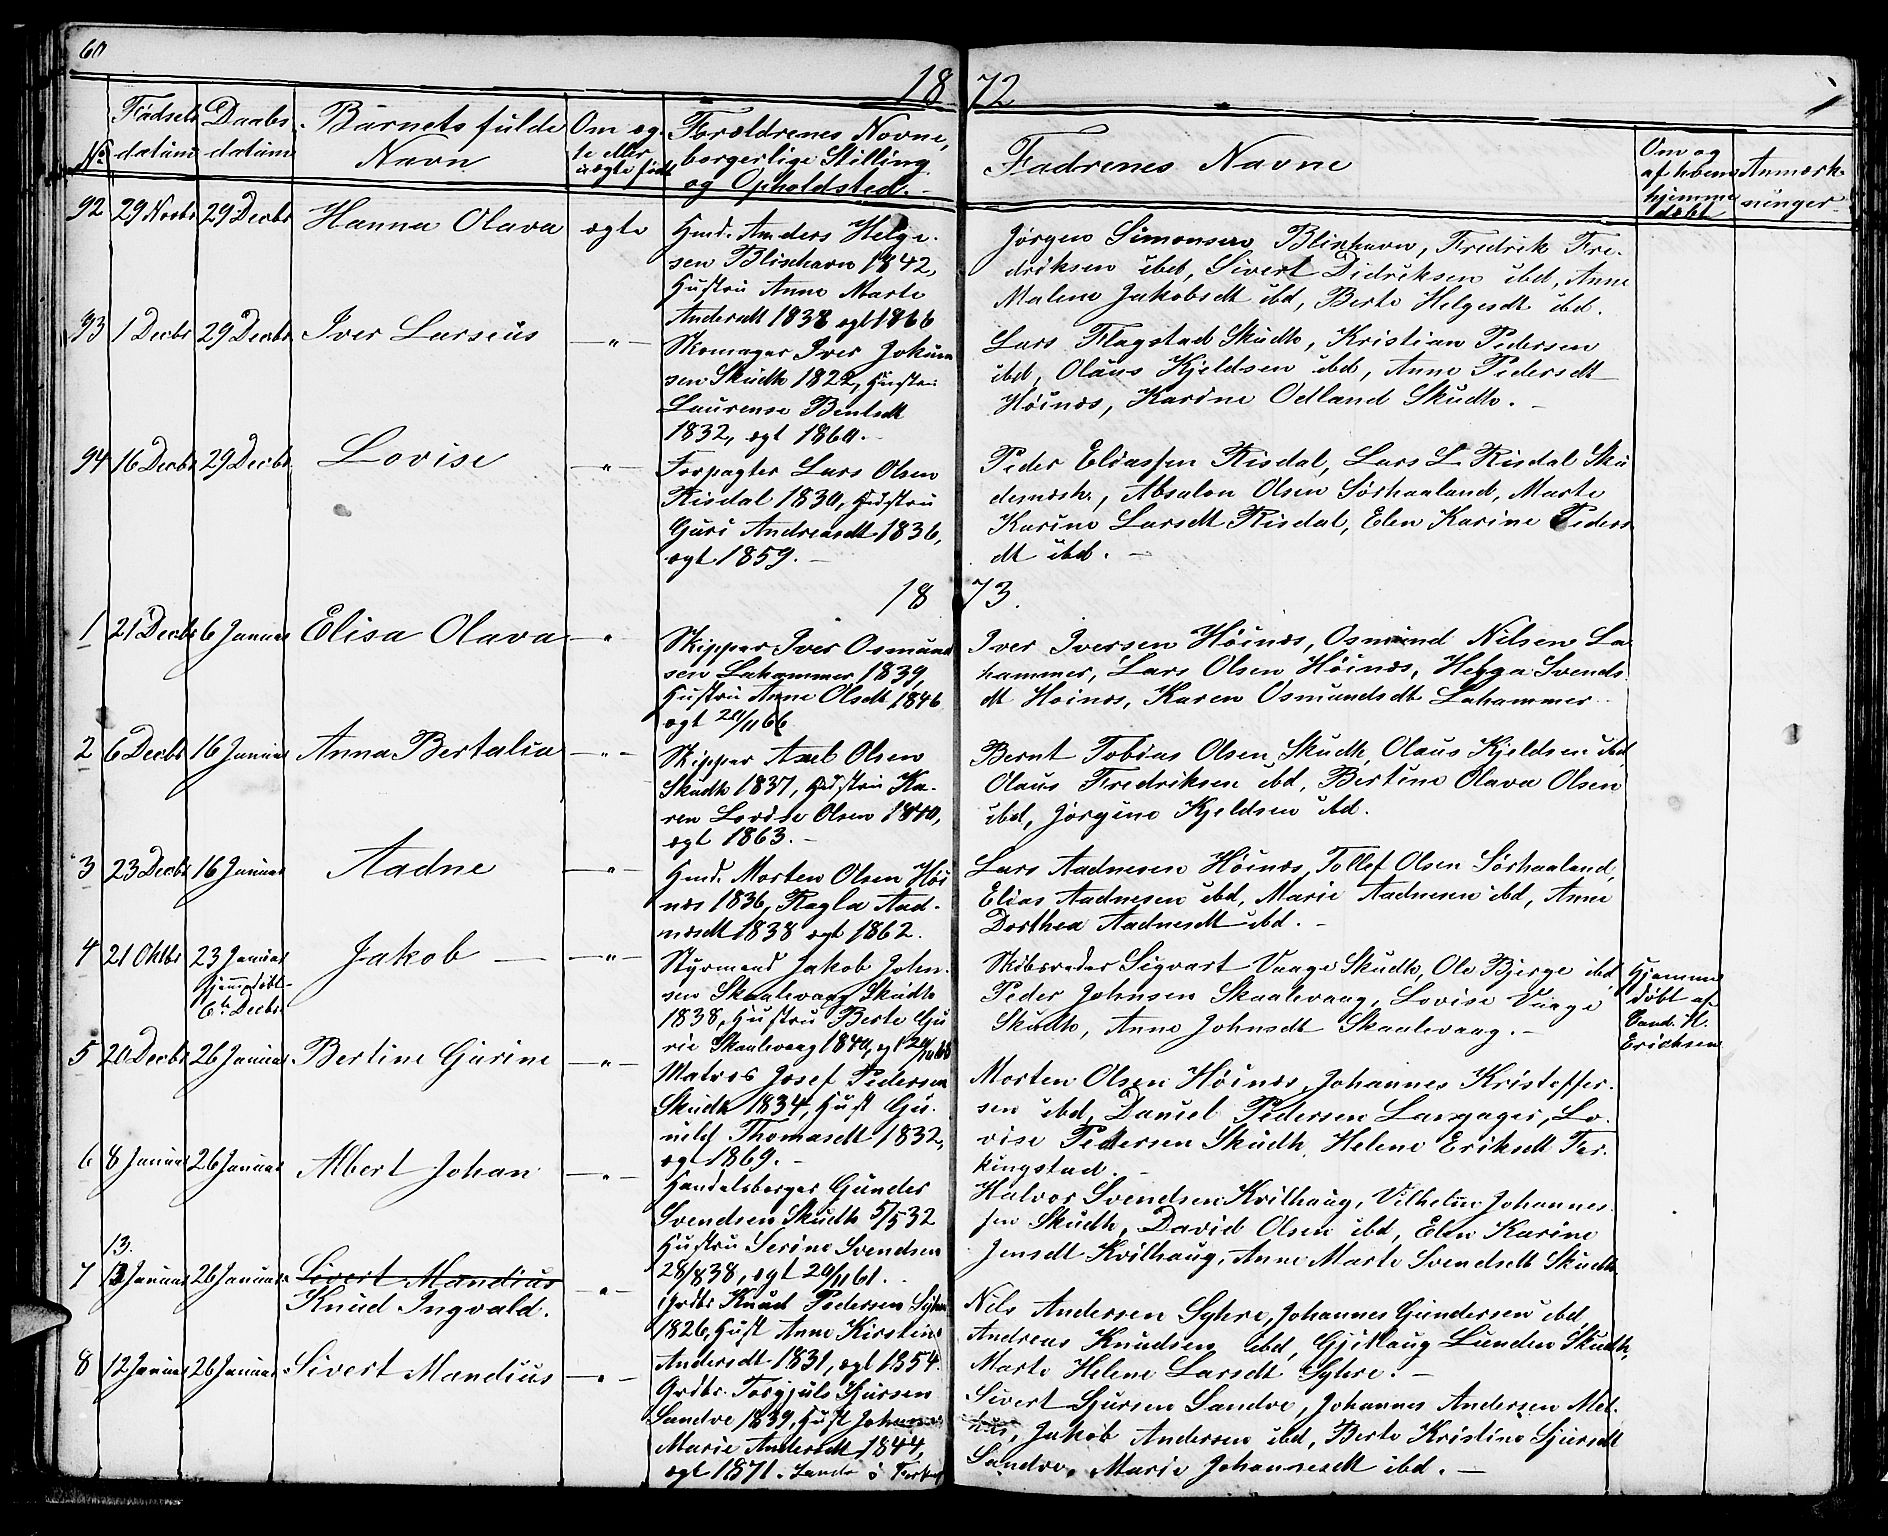 60
18 72
No
Fødsels datum
Daabs datum
Barnets fulde Navn
Om ægte eller uægte født
Forældrenes Navne, borgerlige Stilling og Opholdsted.
Fadrenes Navne
Om og af hvem hjemme døbt
Anmærkninger
92 29 Novbr 29 Decbr Hanna Olava ægte
Gmd. Anders Helge-
sen Blixhavn 1842,
Hustru Anne Marte
Andersdt 1838 egt 1866
Jørgen Simonsen Blixhavn, Fredrik Fre-
driksen ibd, Sivert Didriksen ibd, Anne
Malene Jakobsdt ibd, Berte Helgesdt ibd.
93 1 Decbr 29 Decbr Iver Larseus -"-
Skomager Iver Jokum
sen Skudh 1822, Hustru
Laurense Bentsdt
1832, egt 1860.-
Lars Flagstad Skudh, Kristian Pedersen
ibd, Olaus Kjeldsen ibd, Anne Pedersdt
Høines, Karine Odland Skudh. -
94 16 Decbr 29 Decbr Lovise -"-
Forpagter Lars Olsen
Risdal 1830, Hustru
Guri Andreasdt 1836,
egt 1859. -
Peder Eliassen Risdal, Lars L Risdal Sku
desnesh., Absalon Olsen Sørhaaland, Marte
Karine Larsdt Risdal, Elen Karine Peders
dt ibd. -
18 73.
1 21 Decbr 6 Januar Elisa Olava -"-
Skipper Iver Osmund
sen Lahammer 1839,
Hustru Anne Olsdt 1846
egt 20/11 66
Iver Iversen Høines, Osmund Nilsen La
hammer, Lars Olsen Høines, Helga Svends
dt Høines, Karen Osmundsdt Lahammer
2 6 Decbr 16 Januar Anna Bertalia -"-
Skipper Axel Olsen
Skudh 1837, Hustru Ka-
ren Lovise Olsen 1840,
egt 1863. -
Bernt Tobias Olsen Skudh, Olaus Kjeldsen ibd
Olaus Fredriksen ibd, Bertine Olava Olsen
ibd, Jørgine Kjeldsen ibd.
3 23 Decbr 16 Januar Aadne -"-
Gmd. Morten Olsen Høi
nes 1836, Ragla Aad-
nesdt 1838 egt 1862.
Lars Aadnesen Høines, Tollef Olsen Sørhaaland,
Elias Aadnesen ibd, Marie Aadnesen ibd, Anne
Dorthea Aadnesdt ibd. -
4 21 Oktbr 23 Januar Jakob - -"-
hjemmedøbt
6te Decbr
Styrmand Jakob John-
sen Skaalevaag Skudh
1838, Hustru Berte Gu
rie Skaalevaag 1840, egt
Skibsreder Sigvart Vaage Skudh, Ole Bjerge ibd
Peder Johnsen Skaalevaag, Lovise Vaage
Skudh, Anne Johnsdt Skaalevaag. -
Hjemme
døbt af
Cand. H.
Erichsen
5 20 Decbr 26 Januar Bertine Gurine -"-
Matros Josef Pedersen
Skudh 1834, Hust Gu-
nild Thomasdt 1832,
egt 1869. -
Morten Olsen Høines, Johannes Kristoffer-
sen ibd, Daniel Pedersen Langager, Lo-
vise Pedersen Skudh, Helene Eriksdt Fer-
kingstad. -
6 8 Januar 26 Januar Albert Johan -"-
Handelsborger Gunder
Svendsen Skudh 5/5 32
Hustru Serine Svendsen
28/8 38, egt 20/11 61.
Halvor Svendsen Kvilhaug, Vilhelm Johannes
sen Skudh, David Olsen ibd, Elen Karine
Jensdt Kvilhaug, Anne Marte Svendsdt Skudh.
13.
7 Januar 26 Januar Sivert Mandius
Knud Ingvald. -"-
Grdbr Knud Pedersen Syhre
1826, Hust Anne Kirstine
Andersdt 1831, egt 1854.
Nils Andersen Syhre, Johannes Gundersen ibd,
Andreas Knudsen ibd, Gjitlaug Lunden Skudh,
Marte Helene Larsdt Syhre. -
8 12 Januar 26 Januar Sivert Mandius -"-
Grdbr. Torgjuls Sjursen
Sandve 1839, Hust Johanne
Marie Andersdt 1844,
egt 1871.
Sivert Sjursen Sandve, Johannes Andersen Mel-
hus, Jakob Andersen ibd, Berte Kristine Sjursdt
Sandve, Marie Johannesdt ibd. -